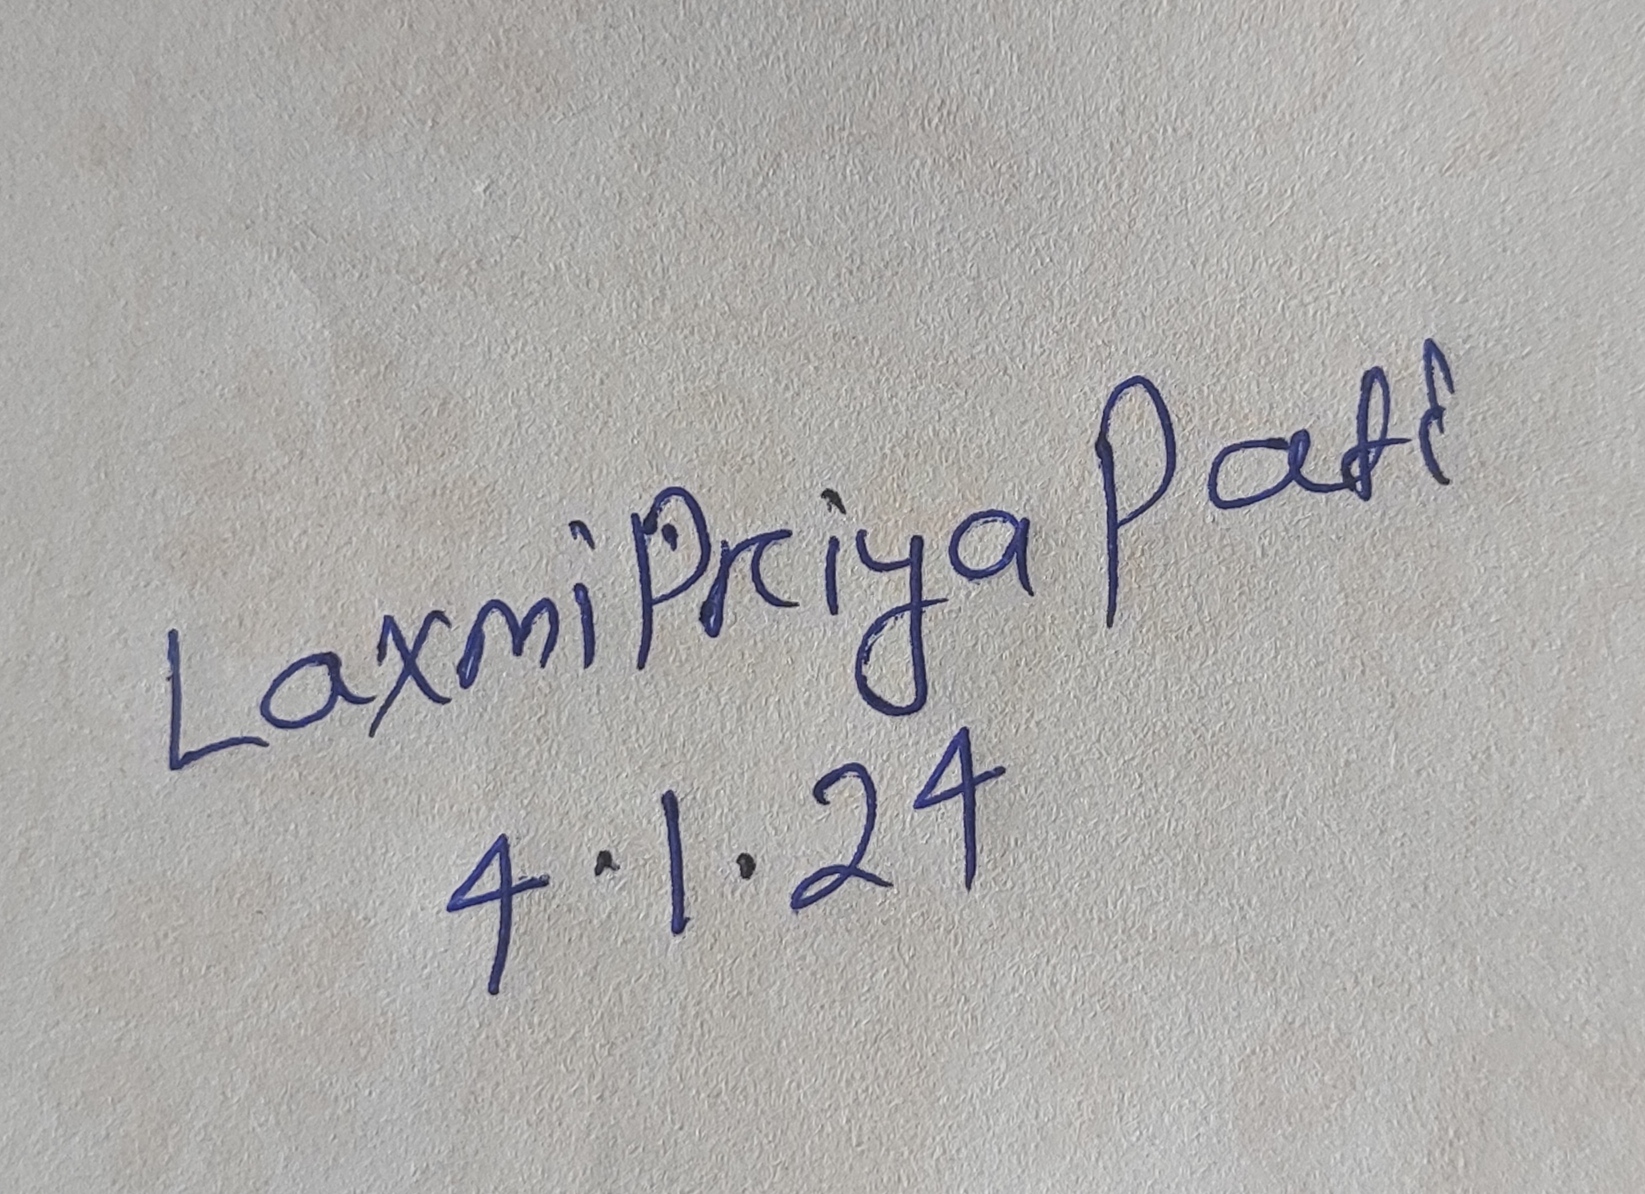 LaxmiPriya Pati
4.1.24